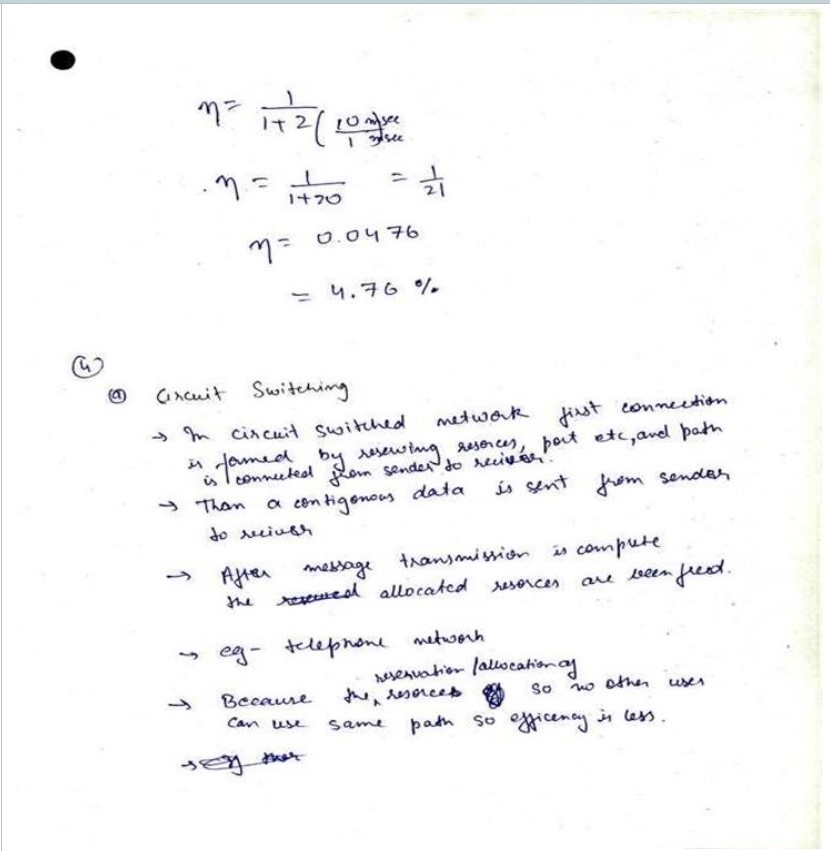 η = 1 / 1+2 ( 10 msec / 1 msec
. η = 1 / 1+20 = 1 / 21
η = 0.0476
= 4.76 %
(4)
(a) Circuit Switching
→ In circuit switched network first connection
is formed by reserving resorces, port etc, and path
is connected from sender to reciever.
→ Than a contigonous data is sent from sender
to reciver
→ After message transmission is compute
the allocated resorces are been freed.
→ eg - telephone network
reservation /allocation of
→ Because the resorces so no other user
can use same path so efficency is less.
→